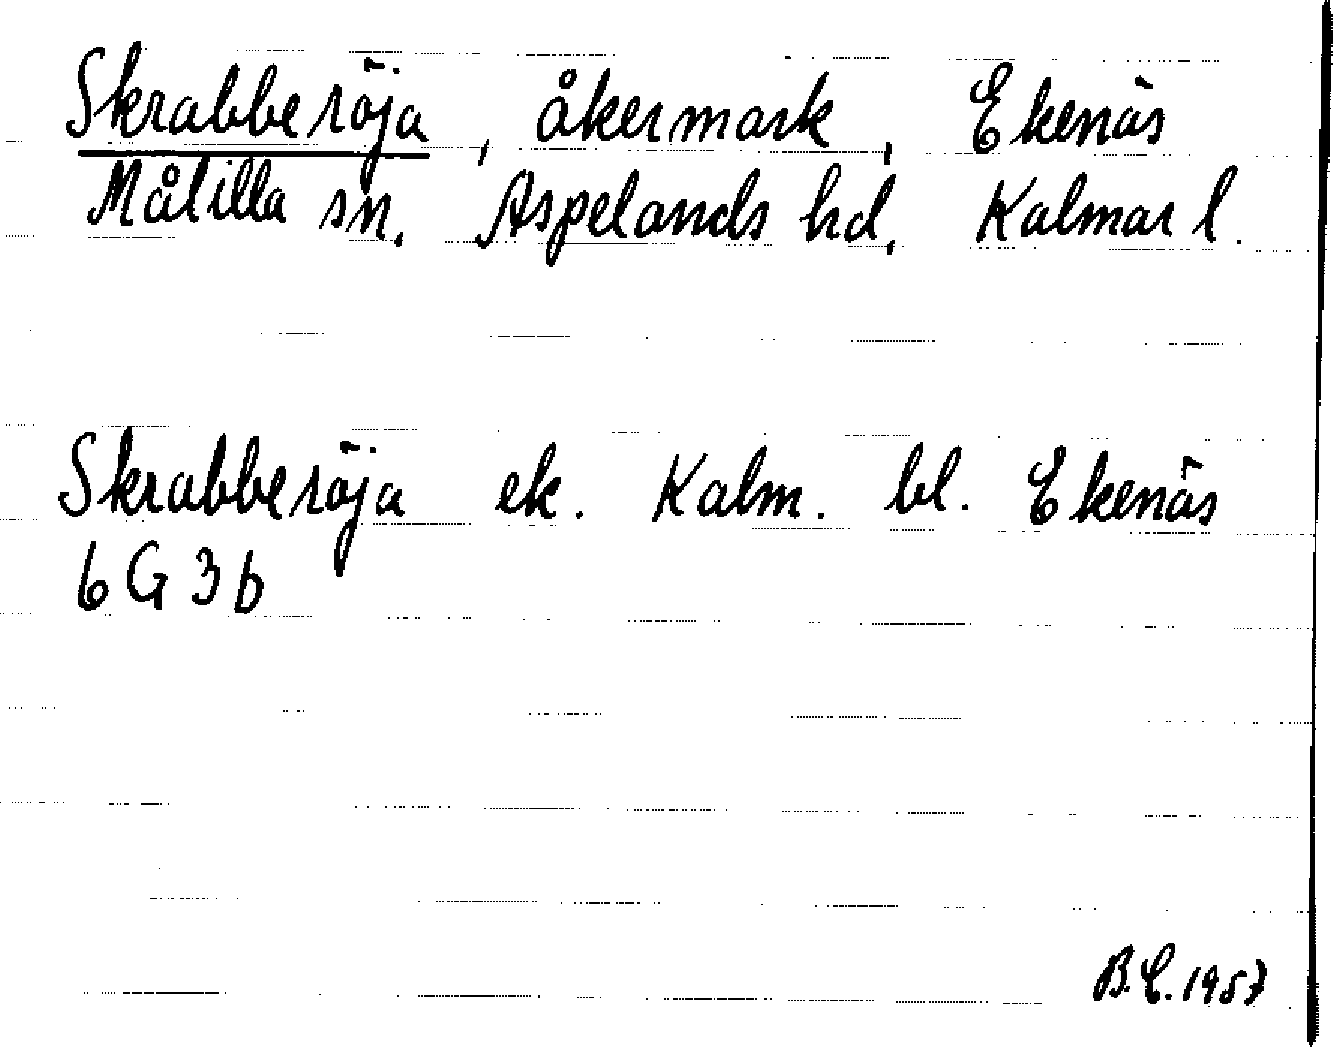 Skrabberöja, åkermark, Ekenäs
Målilla sn. Aspelands hd, Kalmar l.
Skrabberöja ek. Kalm. bl. Ekenäs
6 G 3 b
B.E. 1957